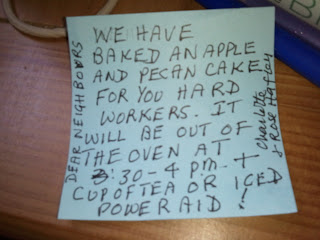 DEAR NEIGHBOURS
WE HAVE
BAKED AN APPLE
AND PECAN CAKE
FOR YOU HARD
WORKERS. IT
WILL BE OUT OF
THE OVEN AT
3:30-4 PM. +
CUP OF TEA OR ICED
POWERAID !
Charlotte
& Rose